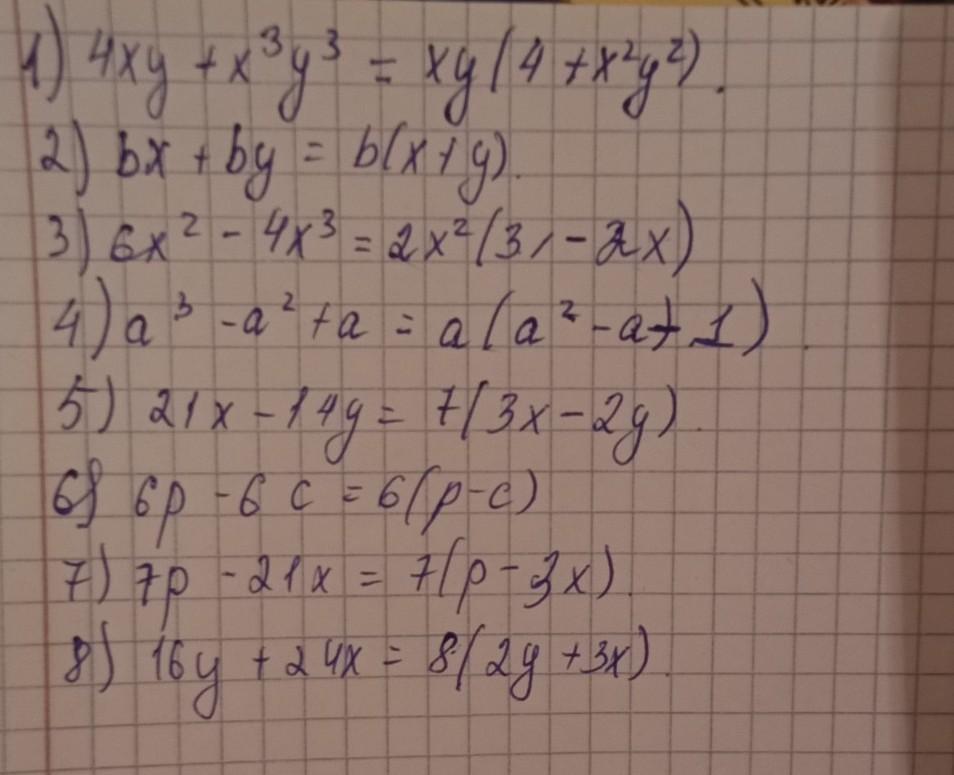 1) 4xy + x³y³ = xy(4 + x²y²).
2) bx + by = b(x + y).
3) 6x² - 4x³ = 2x²(3 - 2x)
4) a³ - a² + a = a(a² - a + 1).
5) 21x - 14y = 7(3x - 2y).
6) 6p - 6c = 6(p - c)
7) 7p - 21x = 7(p - 3x).
8) 16y + 24x = 8(2y + 3x).